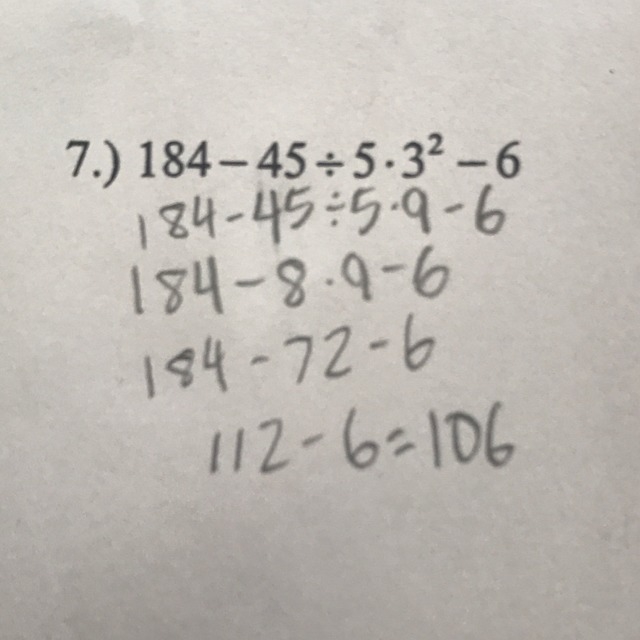 7.) 184 − 45 ÷ 5 · 3² − 6
184 - 45 ÷ 5 · 9 - 6
184 - 8 · 9 - 6
184 - 72 - 6
112 - 6 = 106